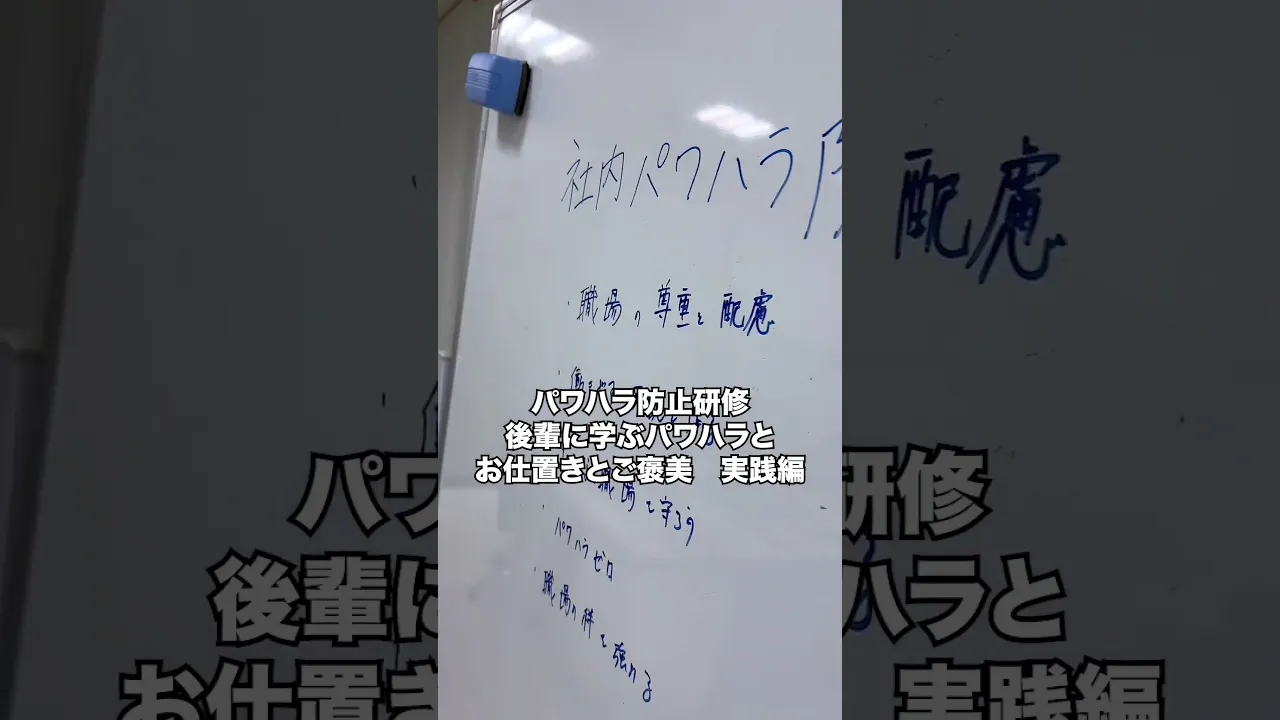 社内パワハラ防
・職場の尊重と配慮
職場を守ろう
・パワハラゼロ
・職場の絆を強める
パワハラ防止研修
後輩に学ぶパワハラと
お仕置きとご褒美 実践編
配慮
パワハラ
研修
後輩に
ハラと
お仕置き
実践編